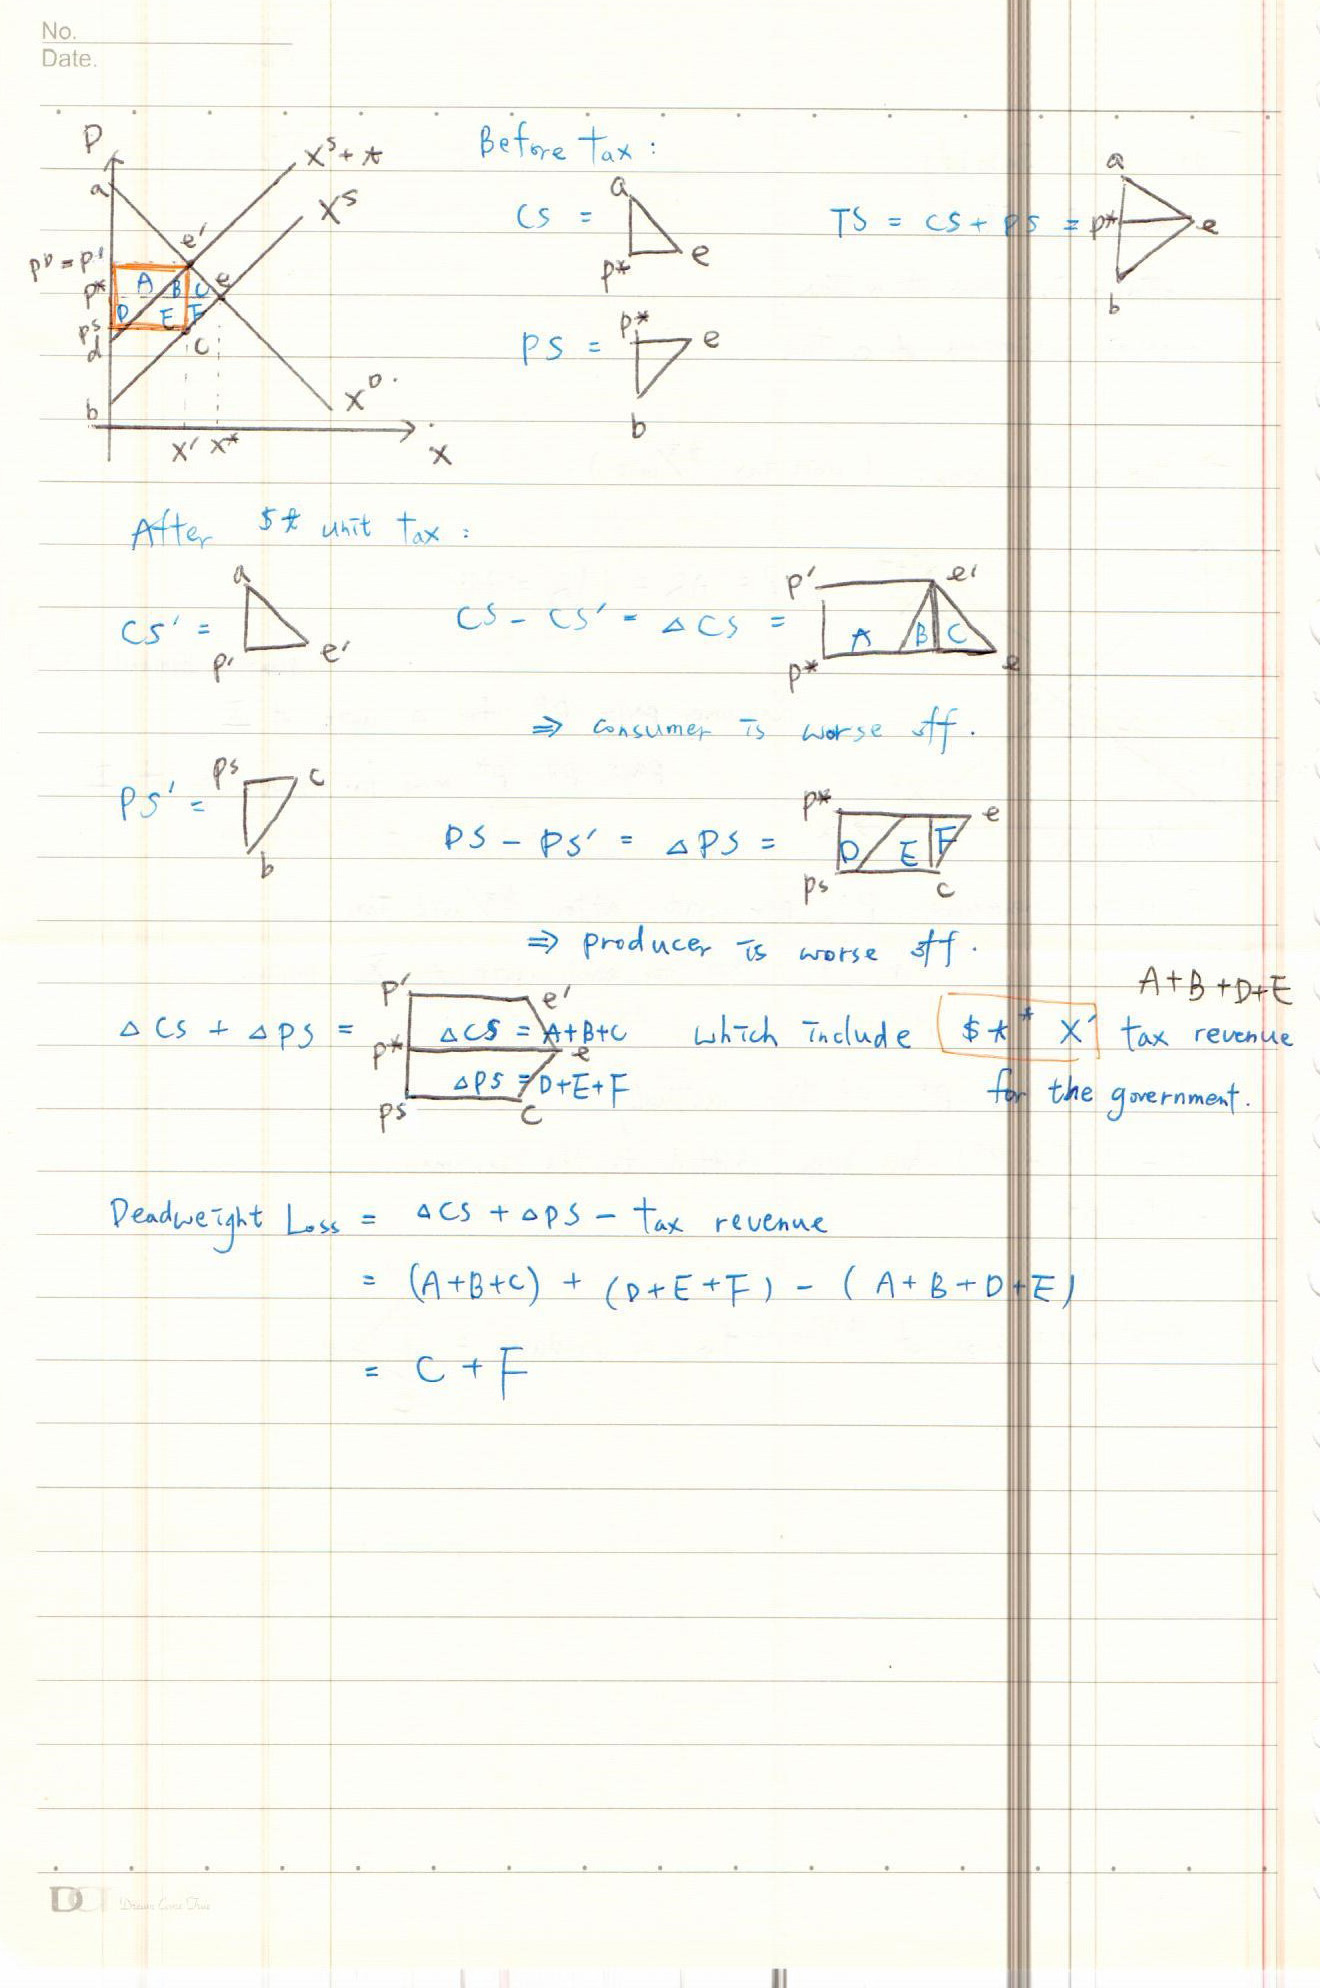 No.
Date.
P
a
pᴰ = p'
p*
pˢ
d
b
e'
e
A
B
C
D
E
F
c
xˢ + t
xˢ
xᴰ
x' x*
x
Before tax :
CS =
a
p*
e
TS = CS + PS =
a
p*
e
b
PS =
p*
e
b
After $t unit tax :
CS' =
a
p'
e'
CS - CS' = △CS =
p'
e'
A B C
p*
e
⇒ consumer is worse off.
PS' =
ps
c
b
PS - PS' = △PS =
p*
e
D E F
ps
c
⇒ producer is worse off.
A+B+D+E
△CS + △PS =
p'
e'
△CS = A+B+C
p*
e
△PS = D+E+F
ps
c
which include $t * x' tax revenue
for the government.
Deadweight Loss = △CS + △PS - tax revenue
= (A+B+C) + (D+E+F) - (A+B+D+E)
= C + F
Dream Come True